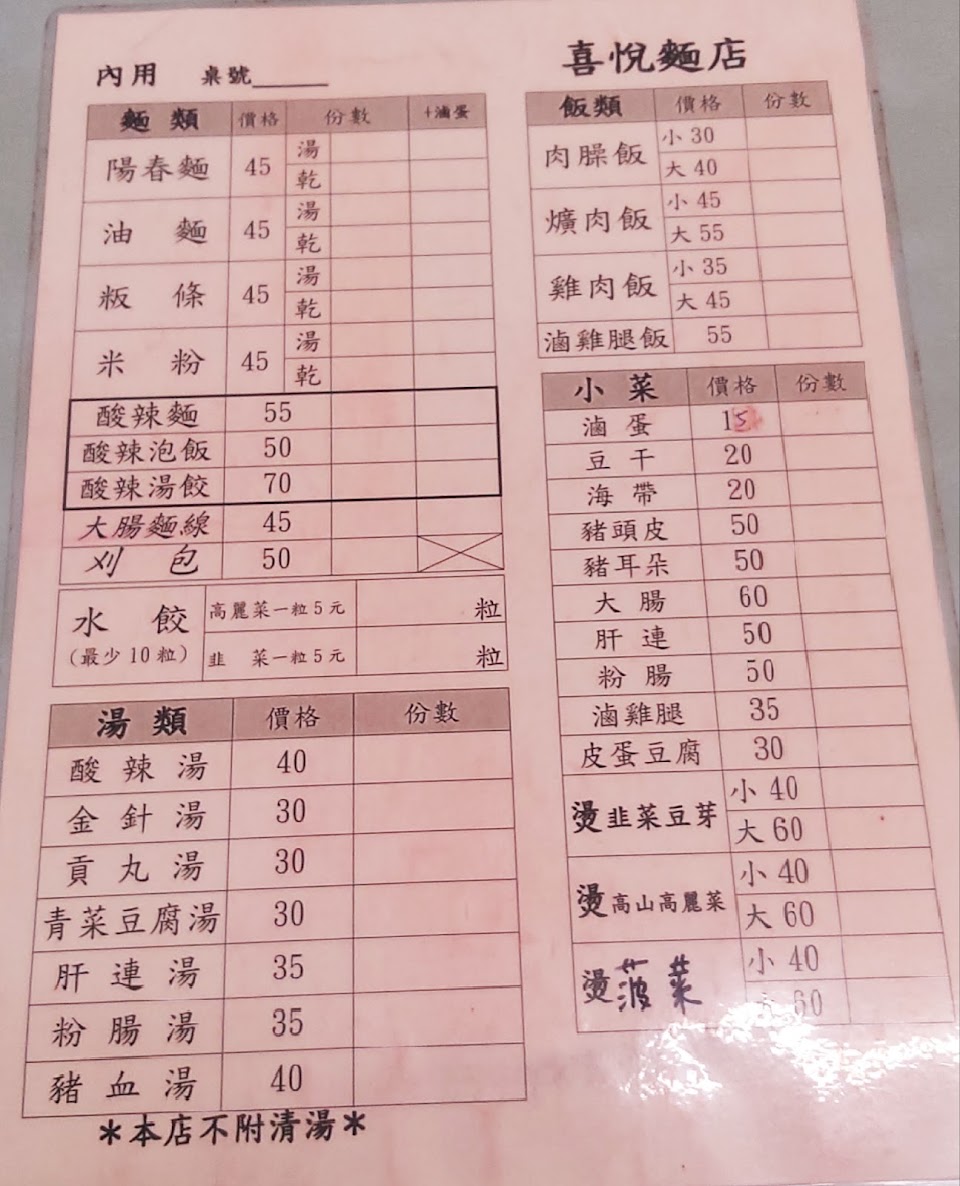 內用 桌號
喜悅麵店
麵類 價格 份數 +滷蛋
陽春麵 45 湯
乾
油麵 45 湯
乾
粄條 45 湯
乾
米粉 45 湯
乾
酸辣麵 55
酸辣泡飯 50
酸辣湯餃 70
大腸麵線 45
刈包 50
水餃 高麗菜一粒5元 粒
(最少10粒) 韭菜一粒5元 粒
湯類 價格 份數
酸辣湯 40
金針湯 30
貢丸湯 30
青菜豆腐湯 30
肝連湯 35
粉腸湯 35
豬血湯 40
*本店不附清湯*
飯類 價格 份數
肉臊飯 小30
大40
爌肉飯 小45
大55
雞肉飯 小35
大45
滷雞腿飯 55
小菜 價格 份數
滷蛋 15
豆干 20
海帶 20
豬頭皮 50
豬耳朵 50
大腸 60
肝連 50
粉腸 50
滷雞腿 35
皮蛋豆腐 30
燙韭菜豆芽 小40
大60
燙高山高麗菜 小40
大60
燙菠菜 小40
大60